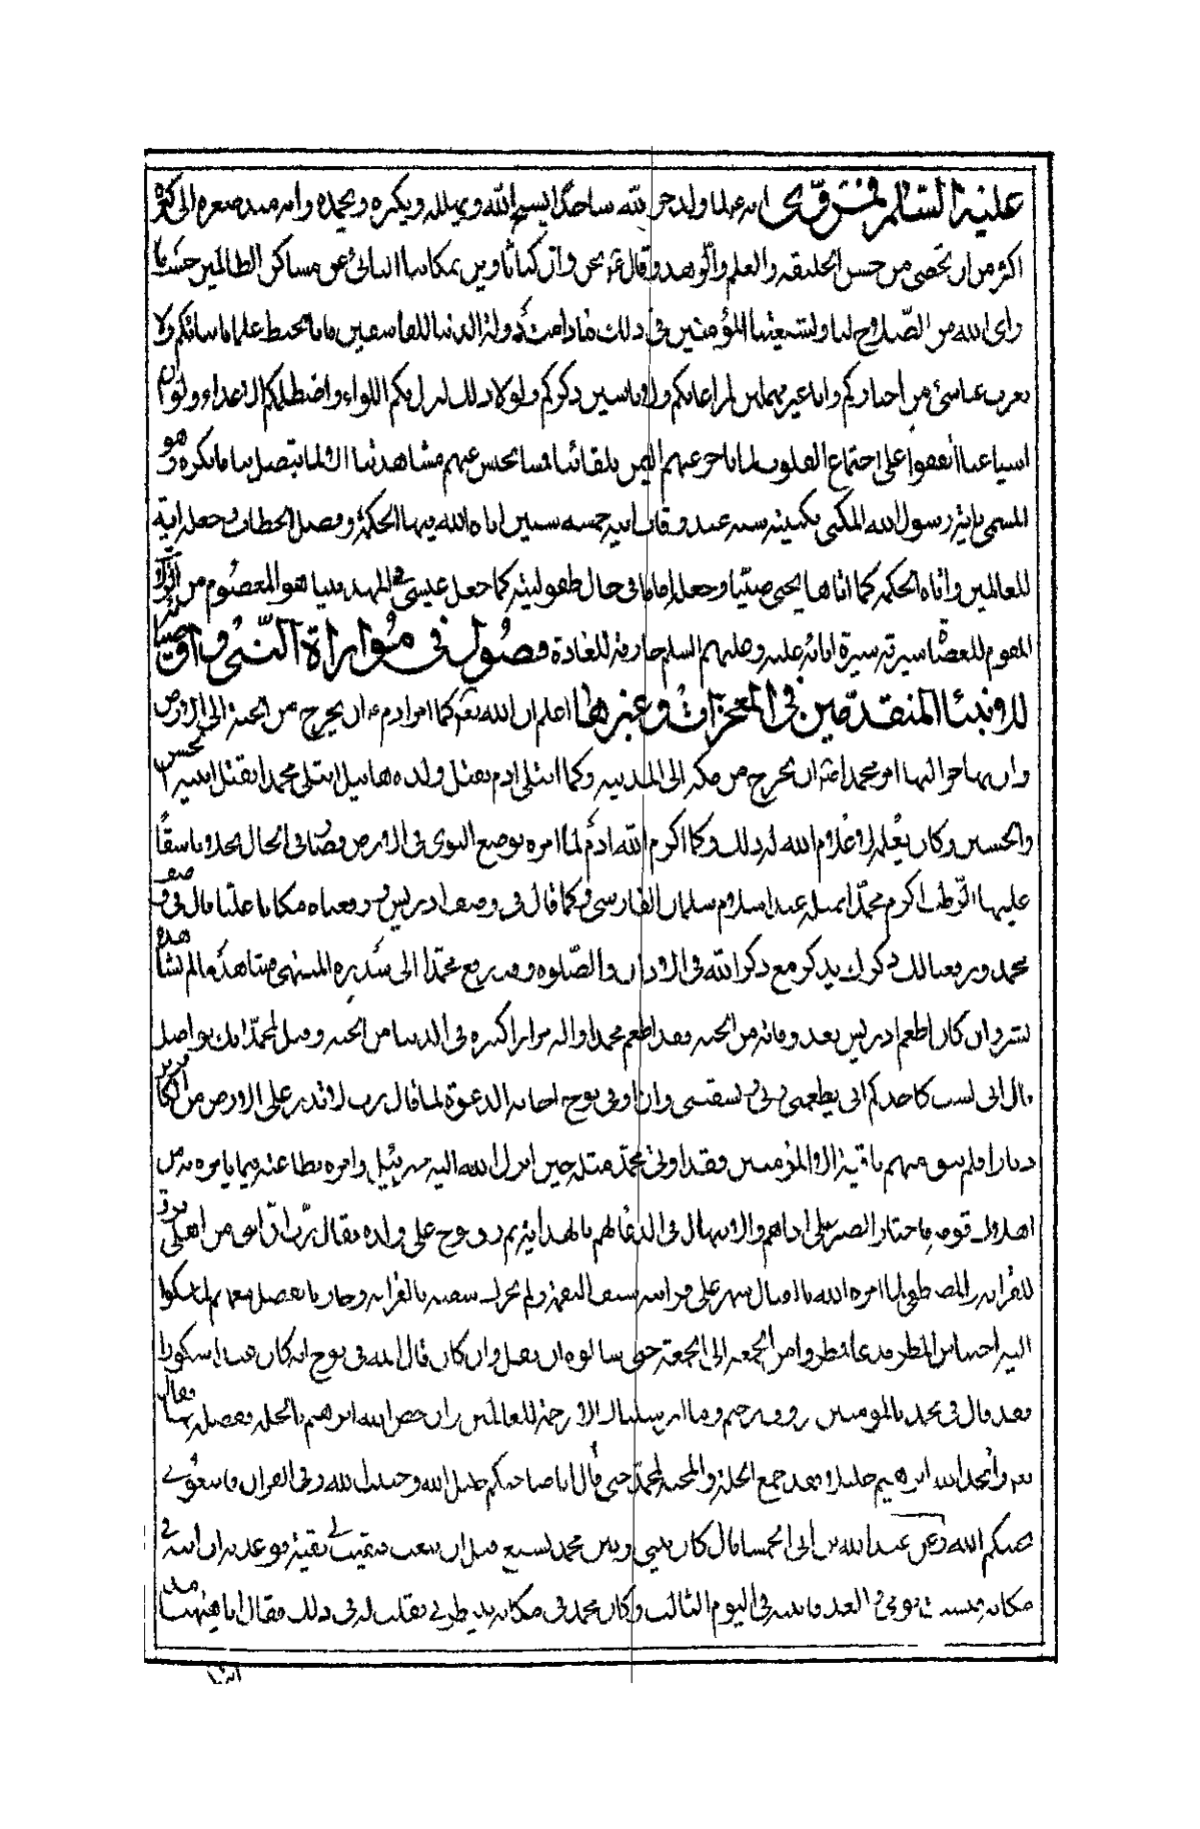 عليه السلم فمن رقى انه علما ولد خر لله ساجدا يسبح الله ويهلله ويكبره ويحمده وانه منذ صغره الى كبره
اكثر من ان تحصى من حسن الخليقه والعلم والزهد وقال نحن وان كنا ثاوين بمكاننا النائى عن مساكن الظالمين حسب ما
راى الله من الصلاح لنا ولشيعتنا المؤمنين فى ذلك مادامت دولة الدنيا للفاسقين فانا نحيط علما بانبائكم ولا
يعزب عنا شئ من اخباركم وانا غير مهملين لمراعاتكم ولا ناسين ذكركم ولولا ذلك لنزل بكم اللواء واصطلمكم الاعداء ولو ان
اشياعنا اتفقوا على اجتماع القلوب لما تاخر عنهم اليمن بلقائنا فما يحبس عنهم مشاهدتنا الا لما يتصل بنا ما نكره وهو
المسمى باسم رسول الله المكنى بكنيته سنه عند وفات ابيه خمسه سنين اتاه الله فيها الحكمة وفصل الخطاب وجعله اية
للعالمين واتاه الحكمه كما اتاها يحيى صبيا وجعله اماما فى حال طفوليته كما جعل عيسى فى المهد نبيا هو المعصوم من الزلات
المقوم للعصاة سيرته سيرة ابائه عليه وعليهم السلم خارقة للعادة فصول فى موازاة النبى واوصيائه
للانبياء المتقدمين فى المعجزات وغيرها اعلم ان الله تعالى كما امر ادم ان يخرج من الجنة الى الارض
وان يهاجر اليها امر محمدا ان يخرج من مكه الى المدينه وكما ابتلى ادم بقتل ولده هابيل ابتلى محمدا بقتل ابنيه الحسن
والحسين وكان يعلم لاعلام الله له ذلك وكما اكرم الله ادم لما امره بوضع النوى فى الارض فصار فى الحال نخلا باسقا
عليها الرطب اكرم محمدا بمثله عند اسلام سلمان الفارسى وكما قال فى وصف ادريس ورفعناه مكانا عليا قال فى وصف
محمد ورفعنا لك ذكرك يذكر مع ذكر الله فى الاذان والصلوه وقد رفع محمدا الى سدره المنتهى فشاهد ما لم يشاهده
بشر وان كان اطعم ادريس بعد وفاته من الجنه فقد اطعم محمدا واله مرارا كثيره فى الدنيا من الجنه وقيل لمحمد انك تواصل
قال انى لست كاحدكم انى يطعمنى ربى ويسقينى وان اوتى نوح اجابه الدعوة لما قال رب لا تذر على الارض من الكافرين
ديارا فلم يبق منهم باقية الا المؤمنين فقد اوتى محمد مثله حين انزل الله اليه جبرئيل وامره بطاعته فيما يامره به من
اهلاك قومه فاختار الصبر على اذاهم والابتهال فى الدعا لهم بالهداية ثم رق نوح على ولده فقال رب ان ابنى من اهلى رقة
للقرابه والمصطفى لما امره الله بالقتال شهر على قرابته سيف النقمة ولم تحركه شفقه القرابه وحار بالفضل معهم لما شكوا
اليه احتباس المطر فدعا فمطروا من الجمعه الى الجمعة حتى سالوه ان يقل وان كان قال الله فى نوح انه كان عبدا شكورا
فقد قال فى محمد بالمومنين رؤوف رحيم وما ارسلناك الا رحمة للعالمين وان خص الله ابرهيم بالخله وفضله بها فقال
واتخذ الله ابرهيم خليلا فقد جمع الخلة والمحبه لمحمد حتى قال انا صاحبكم خليل الله وحبيب الله وفى القران فاتبعونى
يحببكم الله وعن عبد الله بن ابى الحمسا قال كان بينى وبين محمد بيع قبل ان يبعث فبقيت لى بقية فوعدته ان اتيه فى
مكانه فنسيت يومى والغد فاتيته فى اليوم الثالث وكان محمد فى مكانه فقلت له فى ذلك فقال انا هيهنا منذ